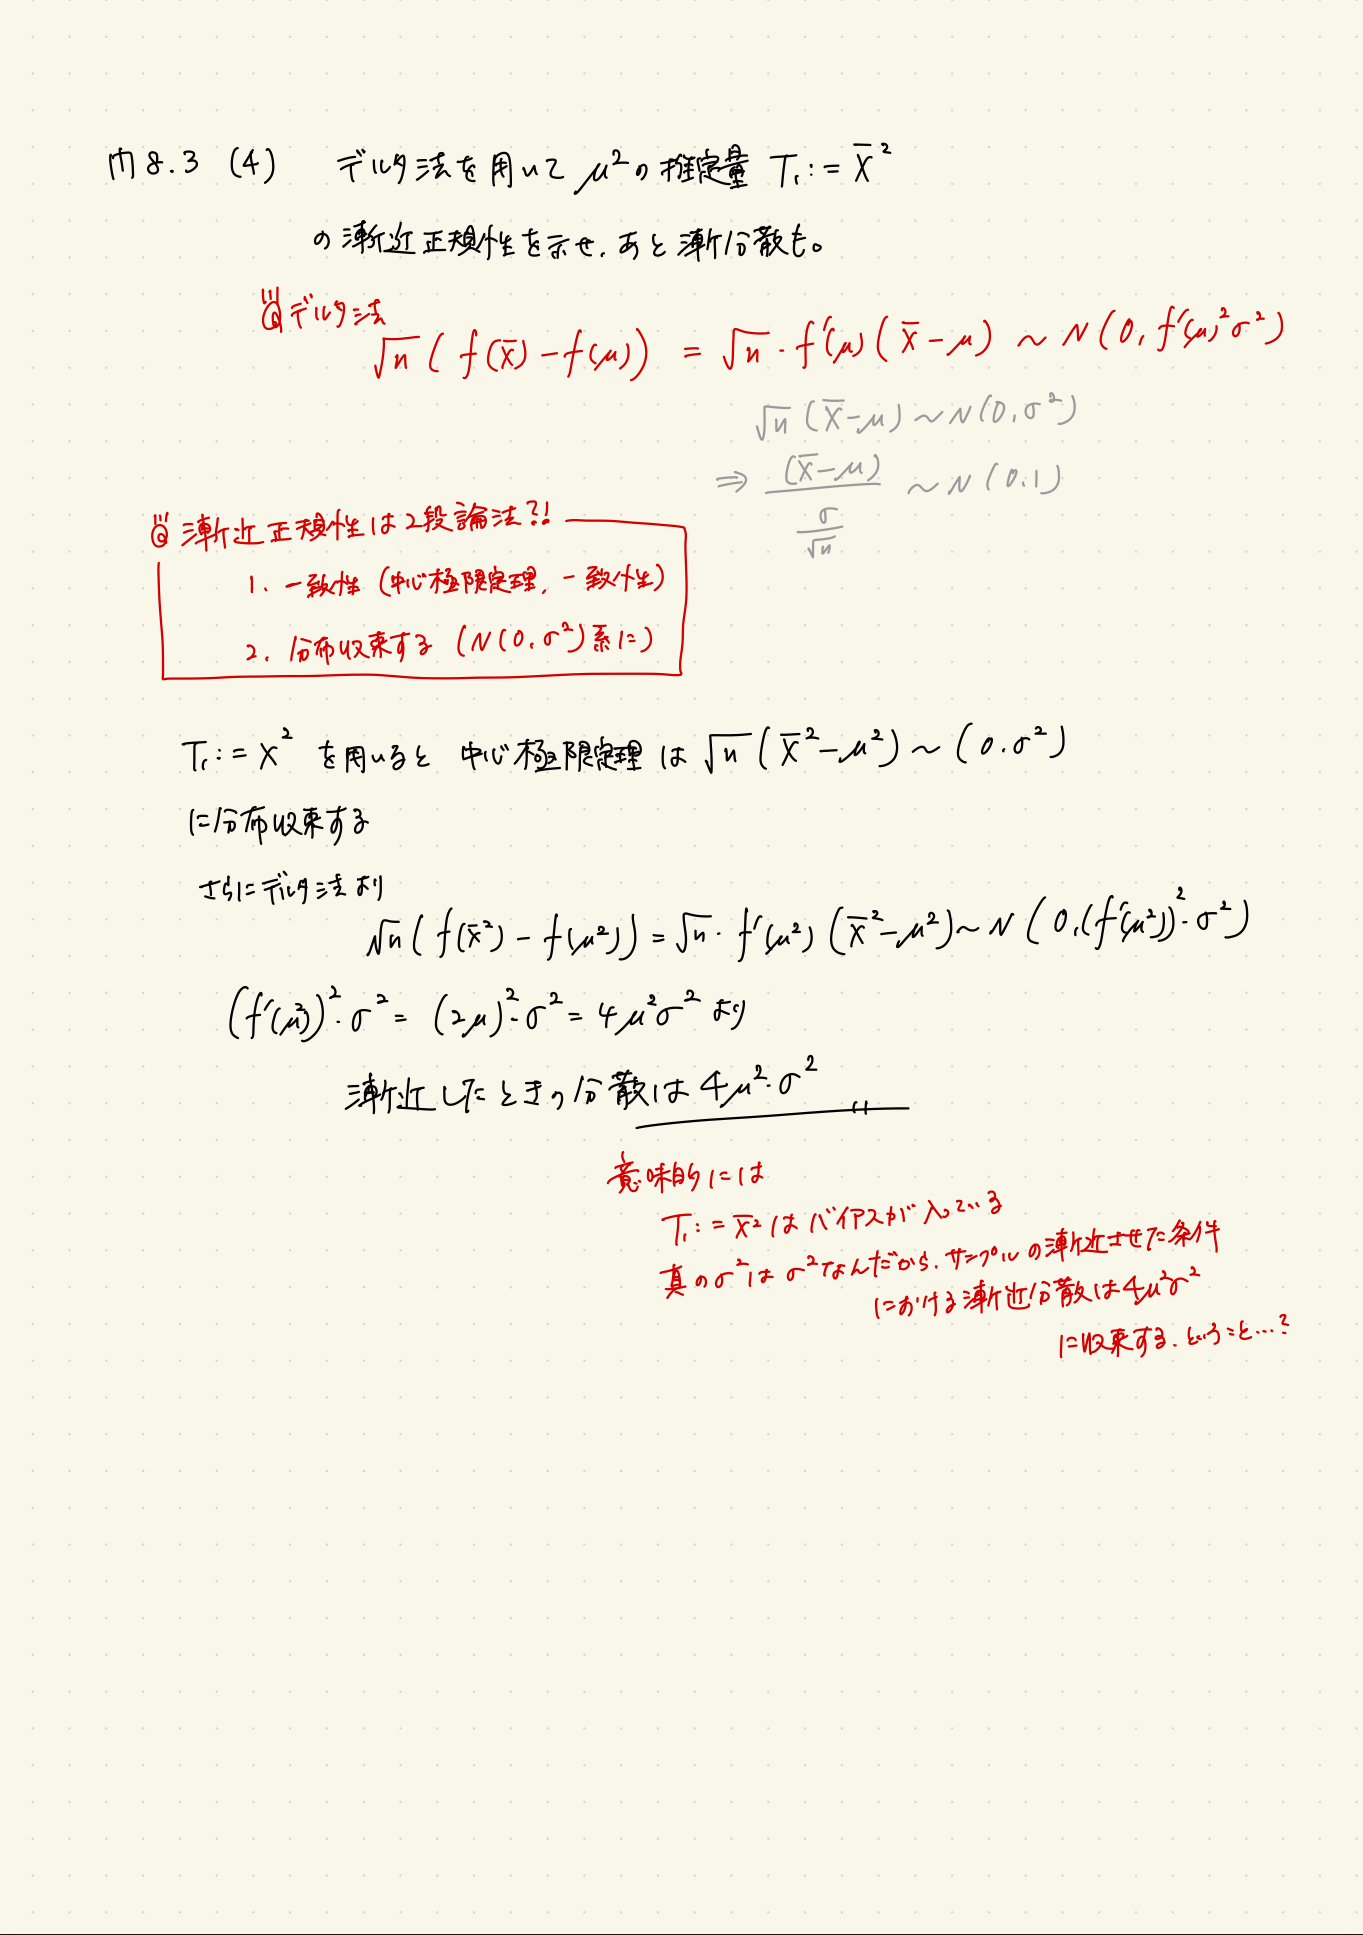 問8.3 (4) デルタ法を用いて μ²の推定量 T₁:= X̄²
の漸近正規性を示せ. あと漸近分散も。
デルタ法
√n ( f(X̄) - f(μ) ) = √n · f'(μ) ( X̄ - μ ) ~ N ( 0, f'(μ)² σ² )
√n ( X̄ - μ ) ~ N ( 0. σ² )
⇒ (X̄ - μ) / (σ / √n) ~ N ( 0.1 )
漸近正規性は2段論法?!
1. 一致性 (中心極限定理, 一致性)
2. 分布収束する (N(0. σ²)系に)
T₁:= X² を用いると 中心極限定理 は √n ( X̄² - μ² ) ~ ( 0. σ² )
に分布収束する
さらにデルタ法より
√n ( f(X̄²) - f(μ²) ) = √n · f'(μ²) ( X̄² - μ² ) ~ N ( 0, (f'(μ²))² · σ² )
(f'(μ²))² · σ² = (2μ)² · σ² = 4μ²σ² より
漸近したときの分散は 4μ² · σ²
意味的には
T₁:= X̄² はバイアスが入っている
真のσ²は σ²なんだから. サンプルの漸近させた条件
における漸近分散は4μ²σ²
に収束する. ということ…?